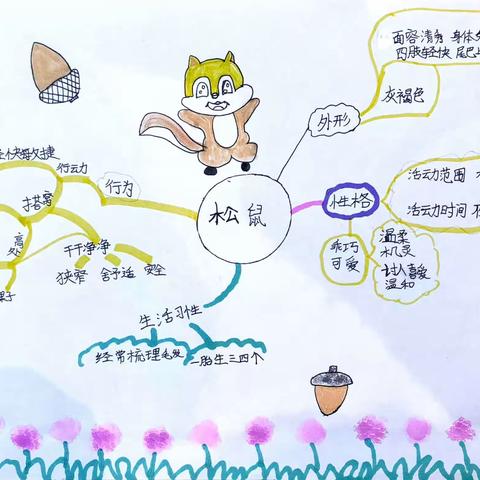 松鼠
外形
面容清秀 身体
四肢轻快 尾巴
灰褐色
性格
活动力范围
活动力时间
乖巧
可爱
温柔
机灵
讨人喜爱
温和
生活习性
经常梳理毛发
一胎生三四个
行为
行动力
敏捷
搭窝
高处
干干净净
狭窄
舒适
安全